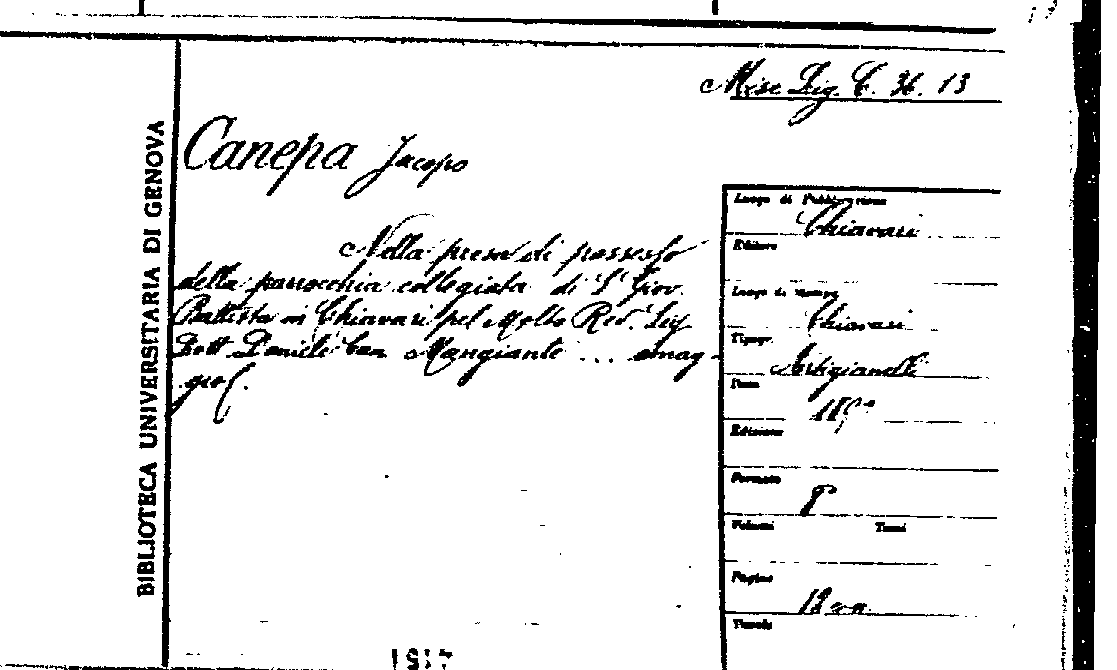 Misc Lig. C. 36. 13
Canepa Jacopo
Nella presa di possesso
della parrocchia collegiata di S. Giov.
Battista in Chiavari pel Molto Rev. Sig
Dott Daniele Can Mangiante ... omag-
gio
BIBLIOTECA UNIVERSITARIA DI GENOVA
Luogo di Pubblicazione
Chiavari
Editore
Luogo di stampa
Chiavari
Tipogr.
Artigianelli
Data
Edizione
Formato
8
Volumi Tomi
Pagine
12
Tavole